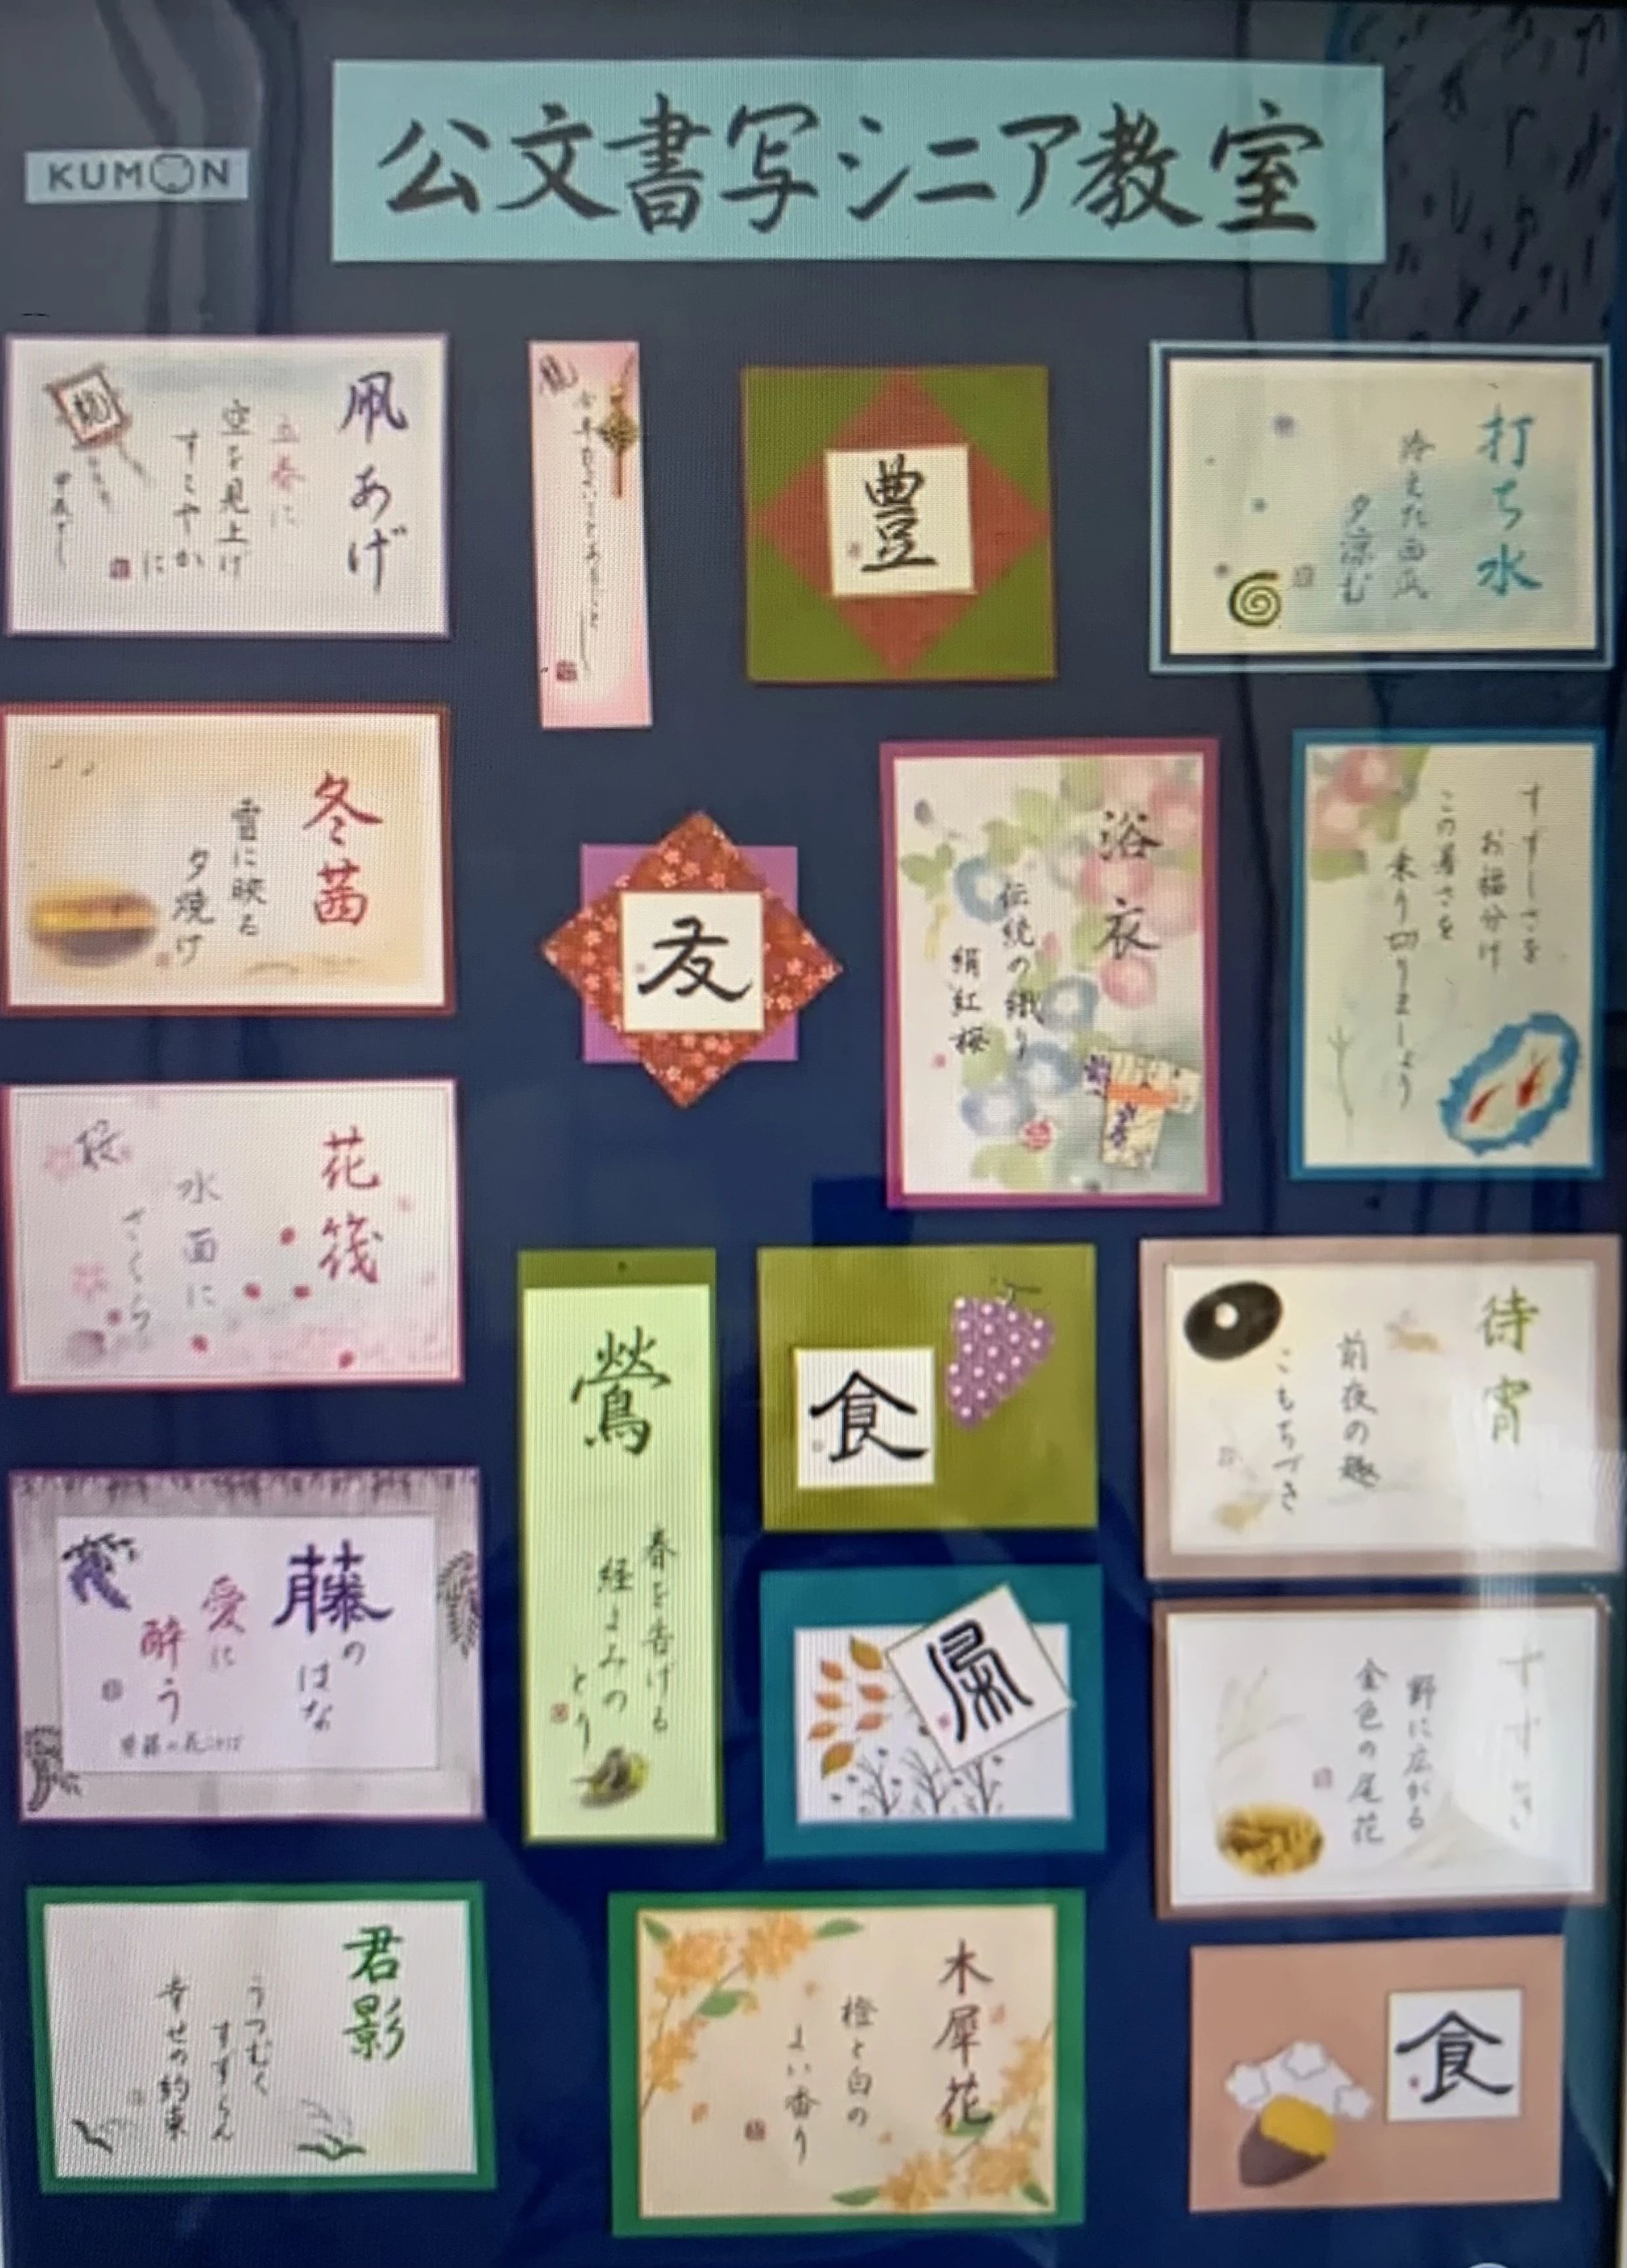 KUMON
公文書写シニア教室
凧あげ
立春に
空を見上げ
すこやか
に
龍
豊
打ち水
冷えた西瓜
夕涼む
冬茜
雪に映る
夕焼け
友
浴衣
伝統の織り
絹紅梅
すずしさを
お福分け
この暑さを
乗り切りましょう
花筏
水面に
さくら
桜
鶯
春を告げる
経よみの
とり
食
待宵
前夜の趣
こもちづき
藤の
はな
愛に
酔う
すすき
野に広がる
金色の尾花
君影
うつむく
すずらん
幸せの約束
木犀花
橙と白の
よい香り
食